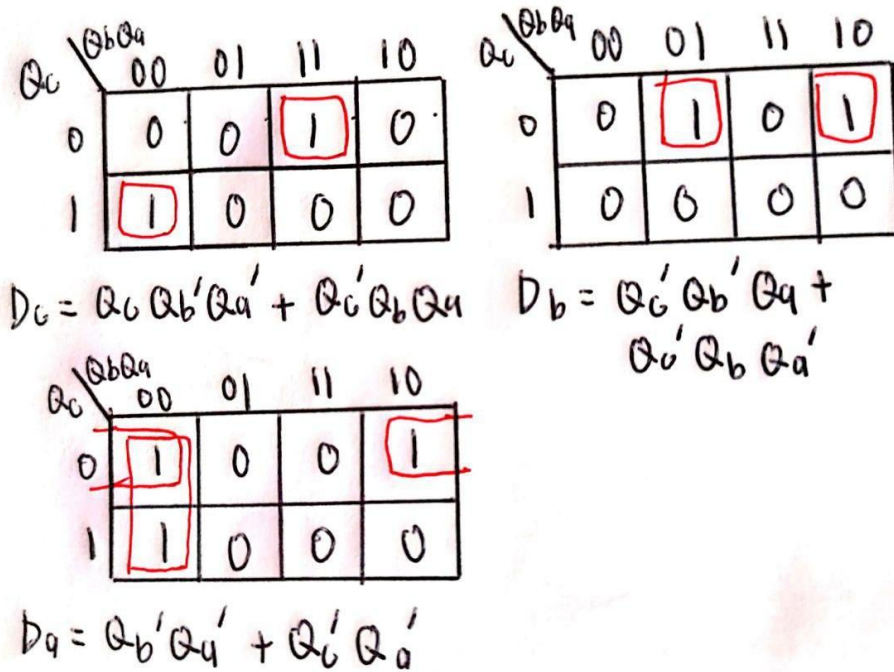 QbQa
Qc 00 01 11 10
0 0 0 1 0
1 1 0 0 0
Dc = Qc Qb'Qa' + Qc'QbQa
QbQa
Qc 00 01 11 10
0 0 1 0 1
1 0 0 0 0
Db = Qc'Qb'Qa +
Qc'QbQa'
QbQa
Qc 00 01 11 10
0 1 0 0 1
1 1 0 0 0
Da = Qb'Qa' + Qc'Qa'